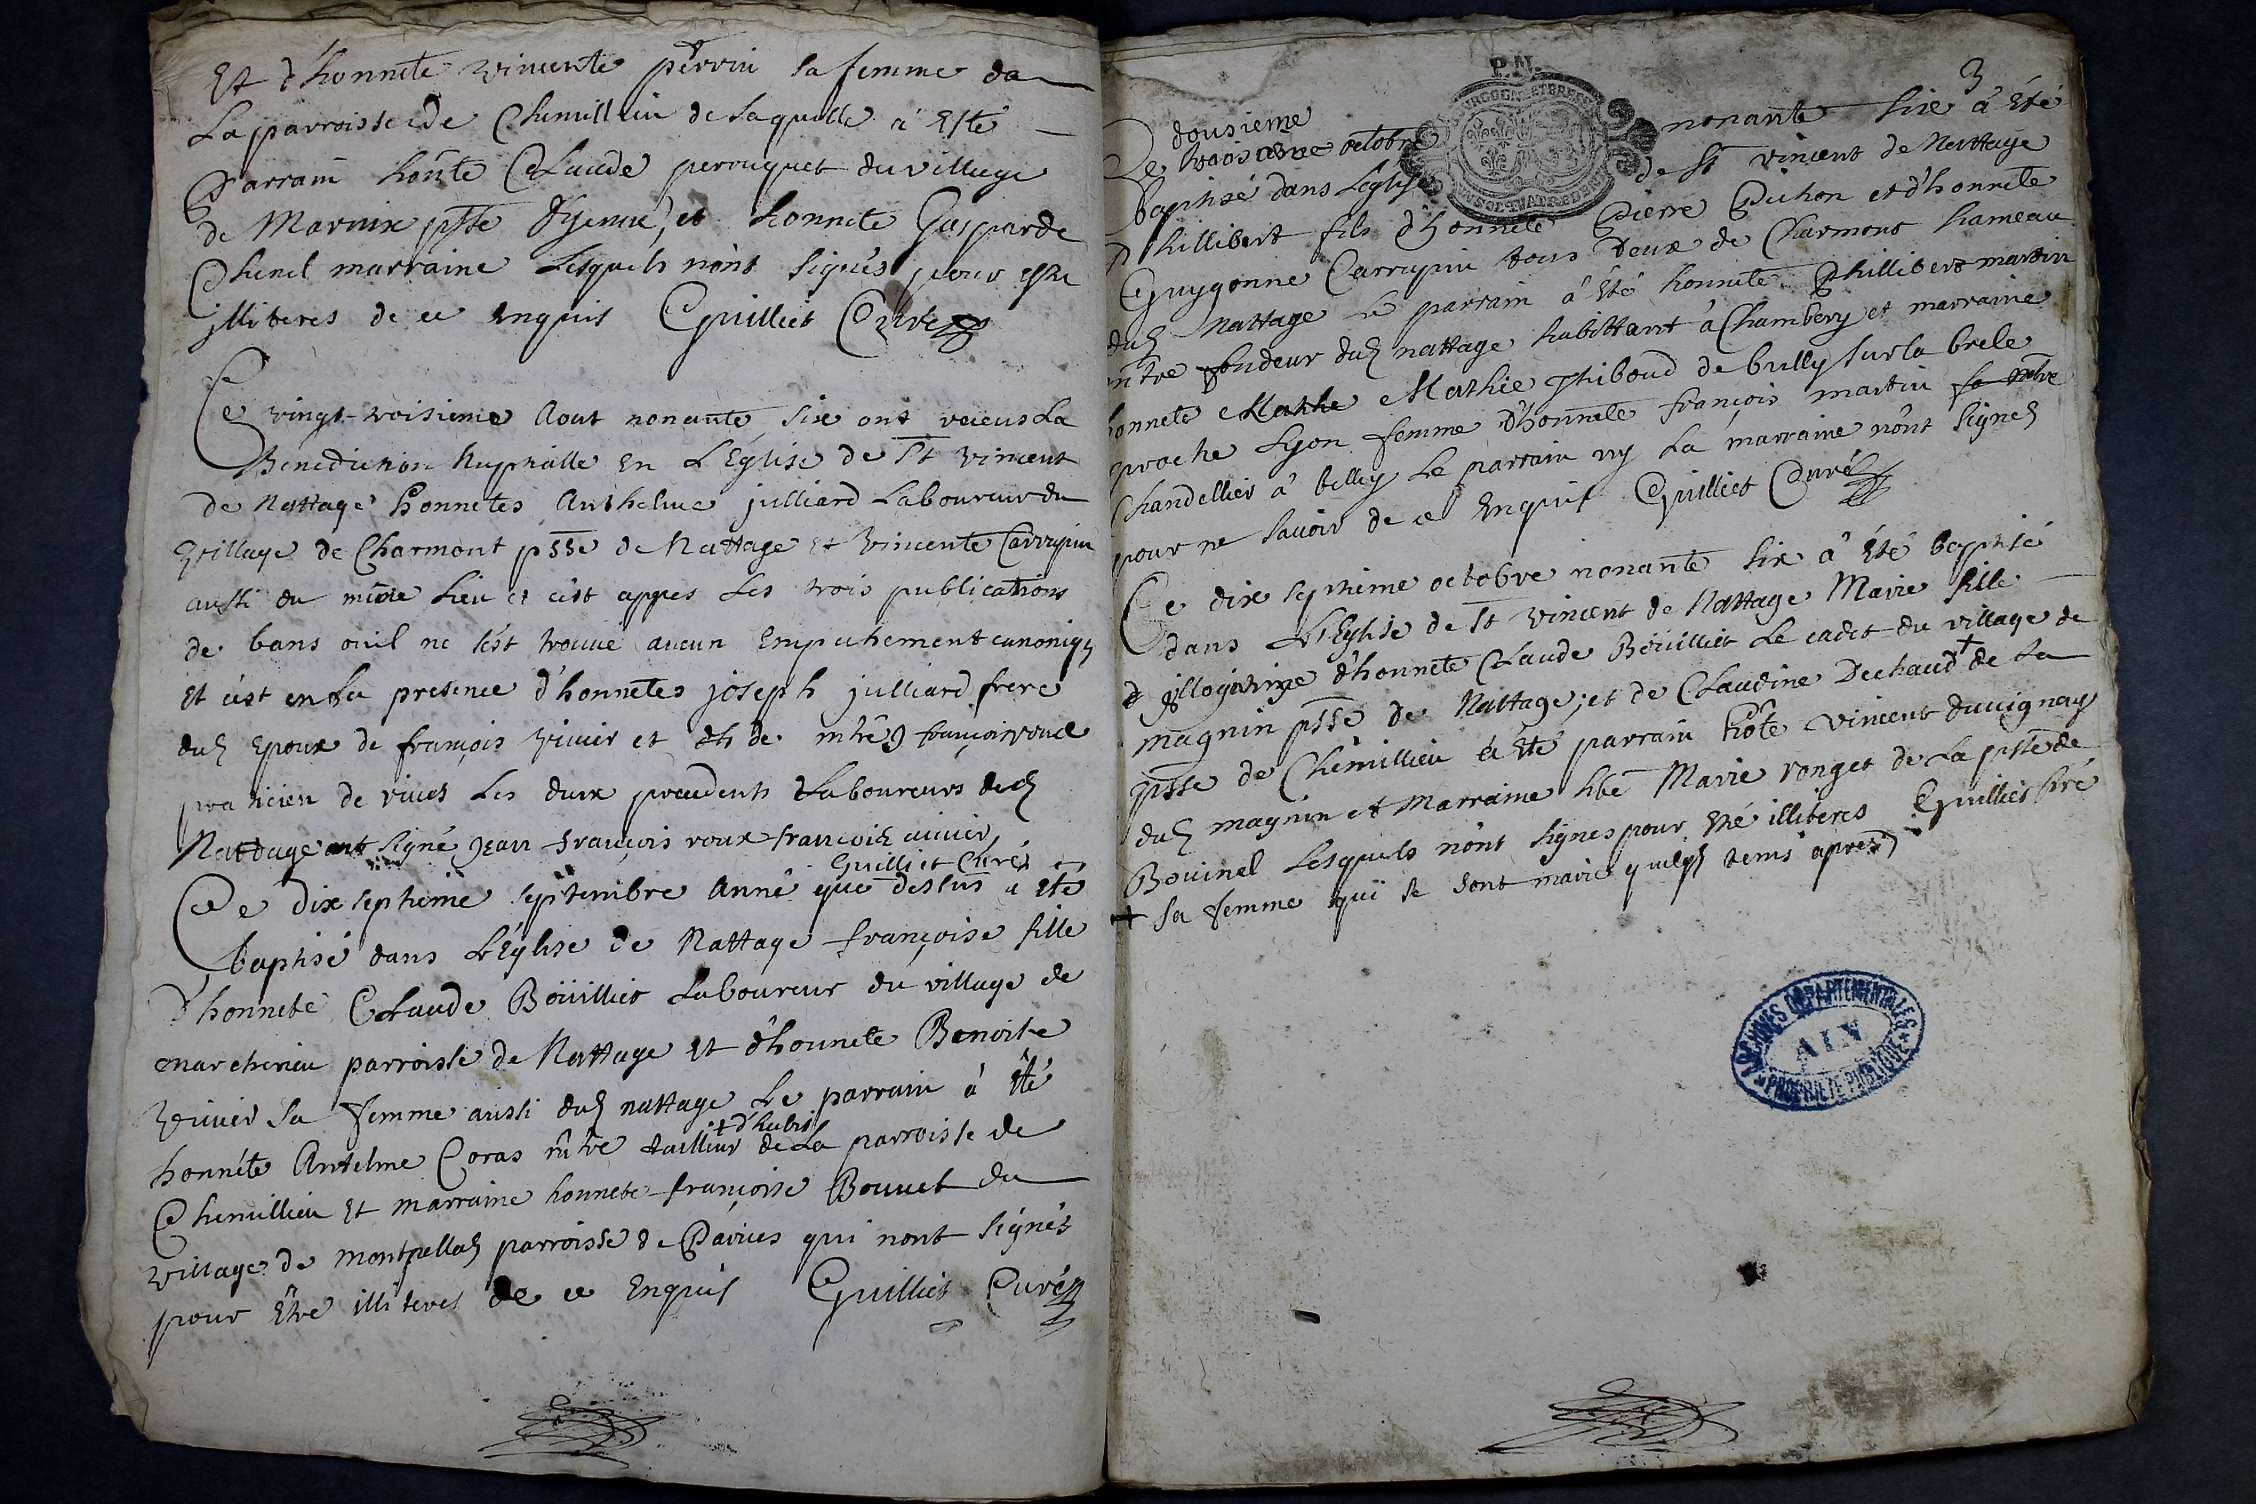 Et d'honnete vincente perrin sa femme da
La parroisse de Chemillieu de laquelle a Esté
Parrain hônte Claude perouquet du village
de Marnix psse d'yenne, et honnete Gasparde
Chenel marraine Lesquels nônt signés pour estre
illiteres de ce Enquis Guilliet Curé
Ce vingt-troisieme Aout nonante six ont receus La
Benediction Nuptialle En L'Eglise de St vincent
de Nattage honnetes Anthelme julliard Laboureur du
village de Charmont psse de Nattage et vincente Carrypin
aussi du même Lieu et c'est appres Les trois publications
de bans ou il ne s'est trouvé aucun Empechement canoniq
et c'est en La presence d'honnetes joseph julliard frere
dud Epoux de françois vivier et de mtre françois roux
praticien de rives Les deux precedents Laboureurs dud
Nattage ont signé jean françois roux françois vivier
Guilliet Curé
Ce dix septieme septembre Anné que dessus a Eté
baptisé dans L'Eglise de Nattage françoise fille
d'honnete Claude Boüilliet Laboureur du village de
marchirieu parroisse de Nattage et d'honnete Benoite
vivier sa femme aussi dud nattage Le parrain à Eté
+ d'habit
honnête Antelme Coras mtre tailleur de La parroisse de
Chemillieu et marraine honnete françoise Bouvet du
village de montpellas parroisse de Parves qui nont signés
pour être illiteres de ce Enquis Guilliet Curé
3
P.N.
dousieme
Ce troisieme octobre nonante six a Eté
baptisé dans L'eglise de St vincent de Nattage
Phillibert fils d'honnete Pierre Pichon et d'honnete
Guygonne Carrypin tous deux de Charmont hameau
dud Nattage Le parrain à été honnete Phillibert martin
mtre fondeur dud nattage habittant à Chambery et marraine
honnete Mathie Mathie Thiboud de bully sur la brele
proche Lyon femme d'honnete françois martin
Chandellier à belley Le parrain ny La marraine nônt signes
pour ne savoir de ce Enquis Guilliet Curé
Ce dix septieme octobre nonante six a été baptisé
dans L'Eglise de St vincent de Nattage Marie fille
illegitime d'honnete Claude Boüilliet Le cadet du village de
magnin psse de Nattage, et de Claudine Dechaud + de La
psse de Chemillieu à été parrain hôte vincent duvignay
dud magnin et Marraine hbe Marie ronget de La psse de
Bovinel Lesquels nônt signes pour été illiteres Guilliet Cré
+ sa femme qui se sont mariés quelq tems apres
ARCHIVES DÉPARTEMENTALES
AIN
PROPRIÉTÉ PUBLIQUE